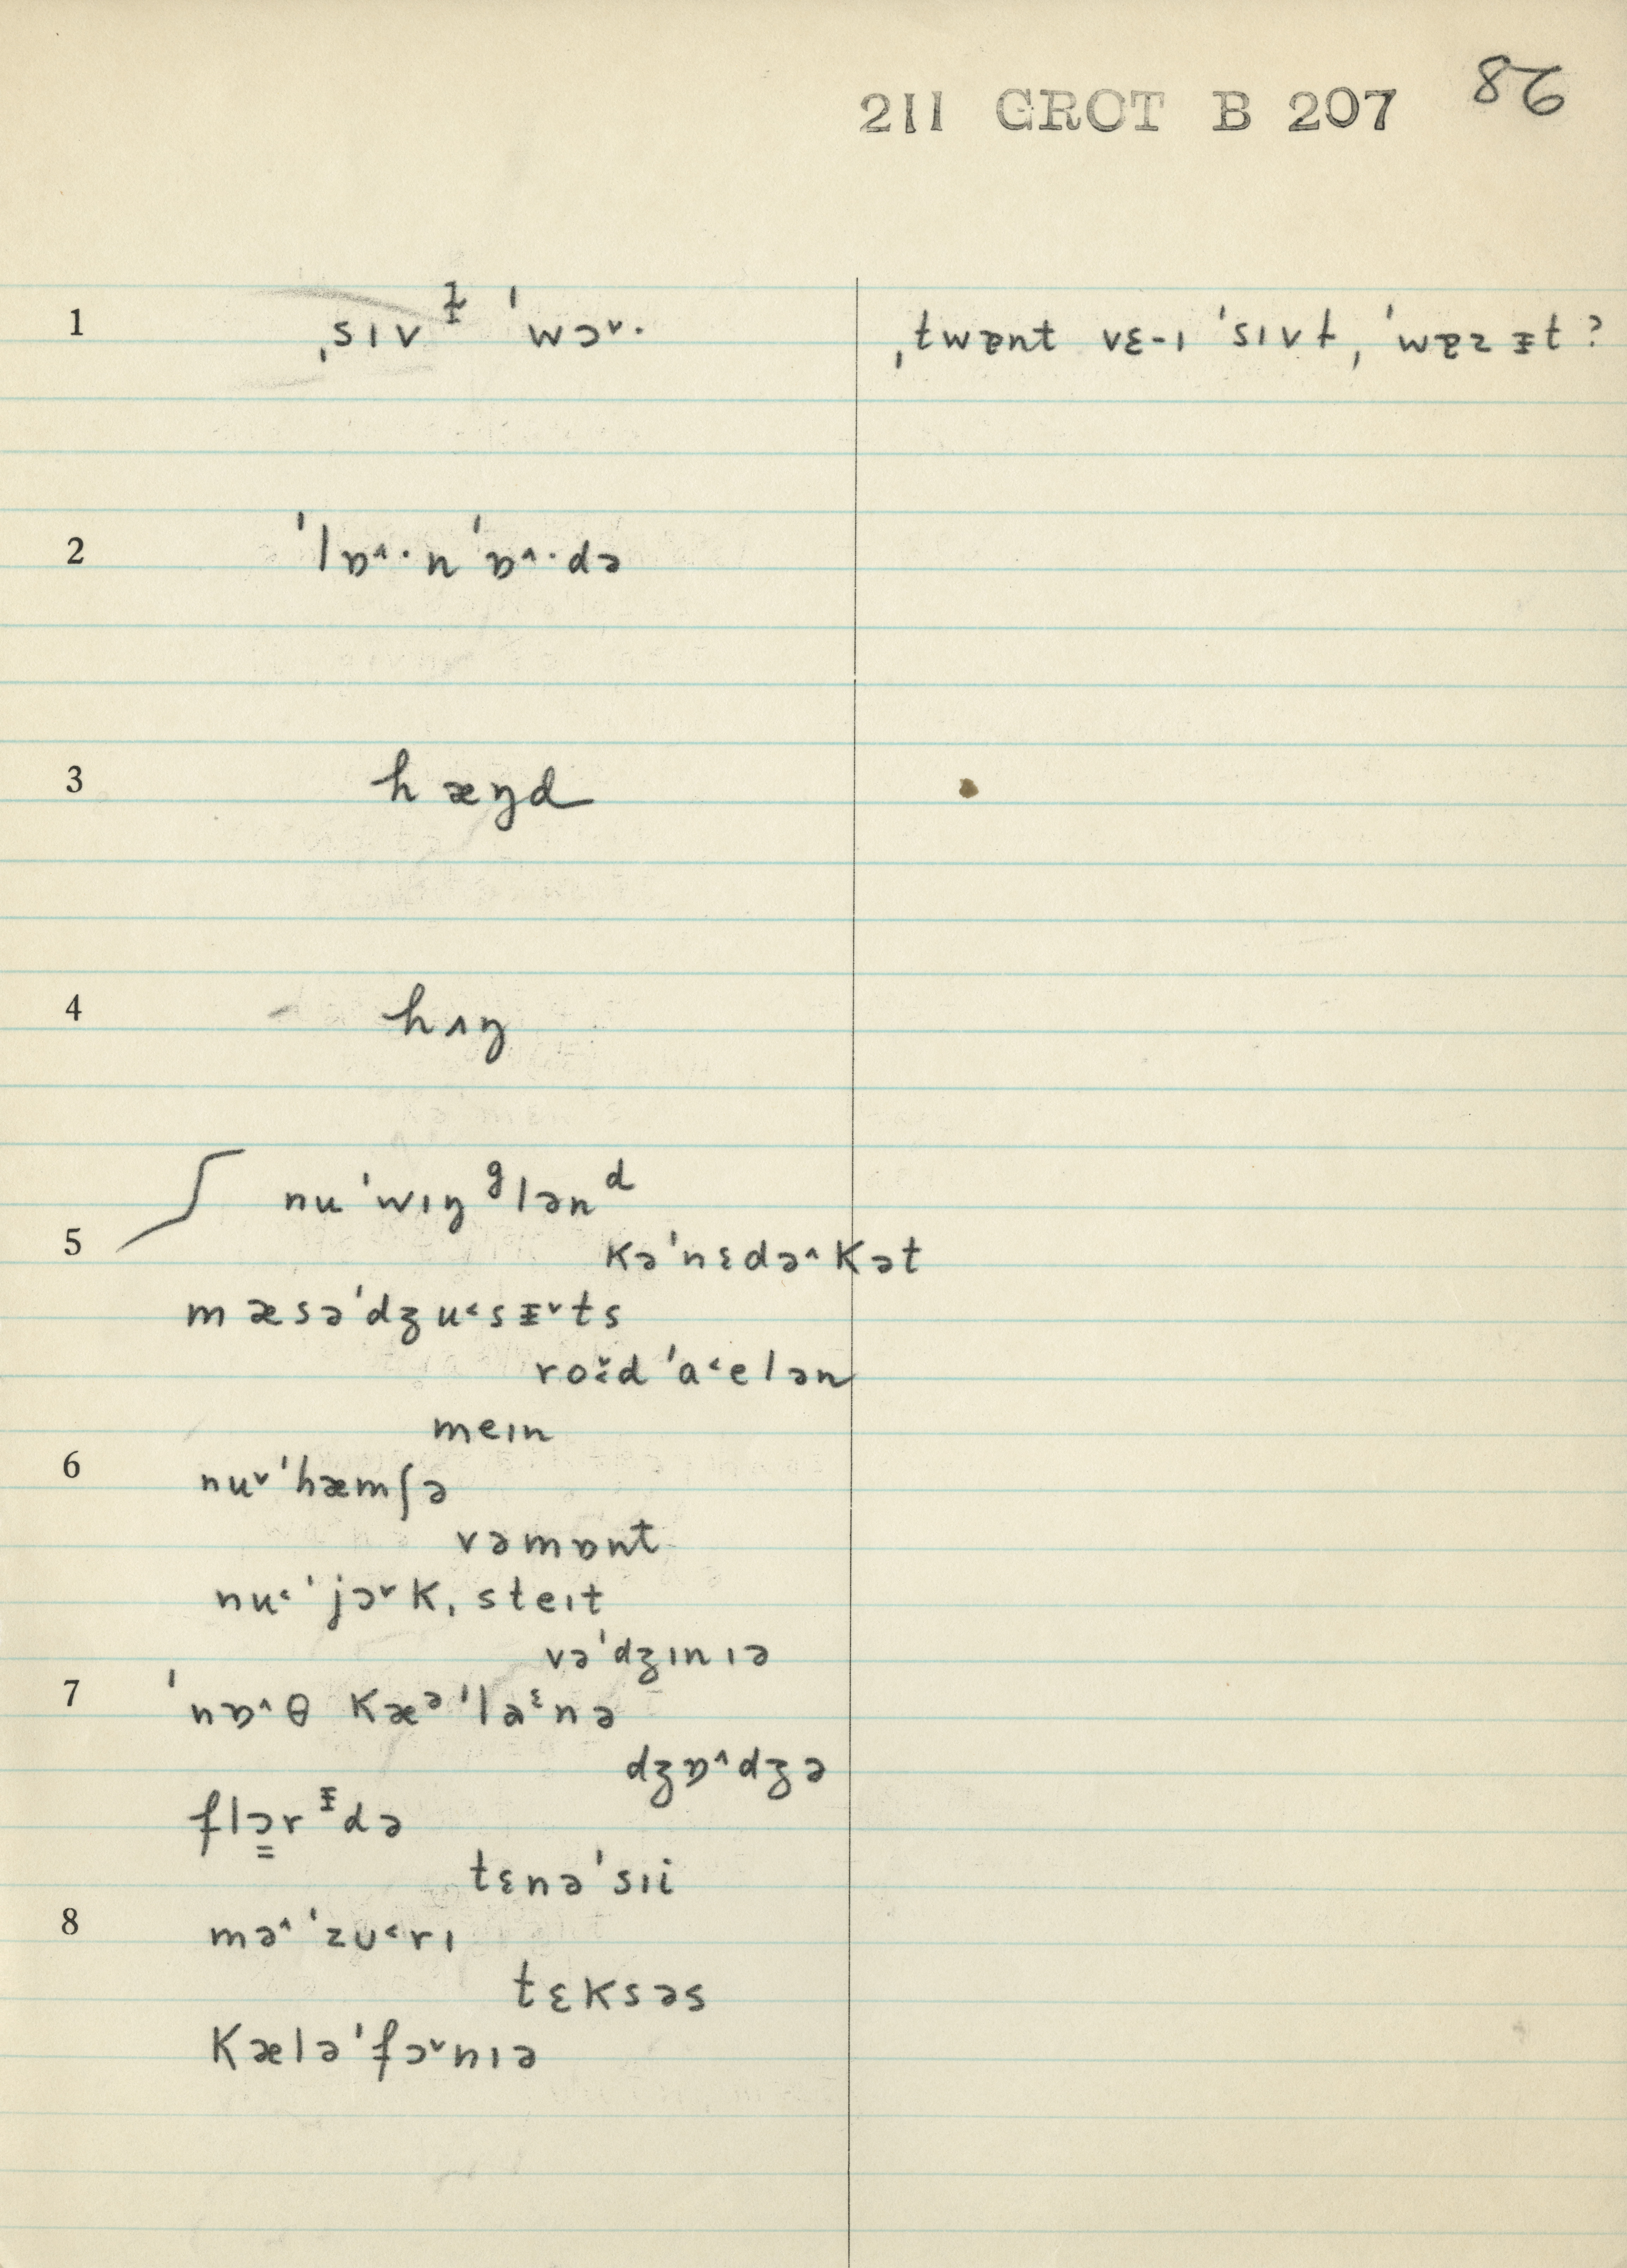 211 GROT B 207 86
1 ˌsɪvᵻ ˈwɔ˅· ˌtwɒnt vɛ-ɪ ˈsɪvɫ, ˈwɒz ᵻt?
2 ˈlɒ˄·n ˈɒ˄·də
3 hæŋd
4 hʌŋ
nu ˈwɪŋᵍlənᵈ
5 kəˈnɛdə˄kət
mæsəˈdʒu˂sᵻ˅ts
ˈa˂elən
meɪn
6 nu˅ˈhæmʃə
vəmɒnt
nu˂ˈjɔ˅k, steɪt
vəˈdʒɪnɪə
7 ˈnɒ˄θ kæᵊˈlaᵋnə
dʒɒ˄dʒə
flɔ̳rᵻdə
tɛnəˈsɪi
8 mə˄ˈzʊ˂rɪ
tɛksəs
kæləˈfɔ˅nɪə